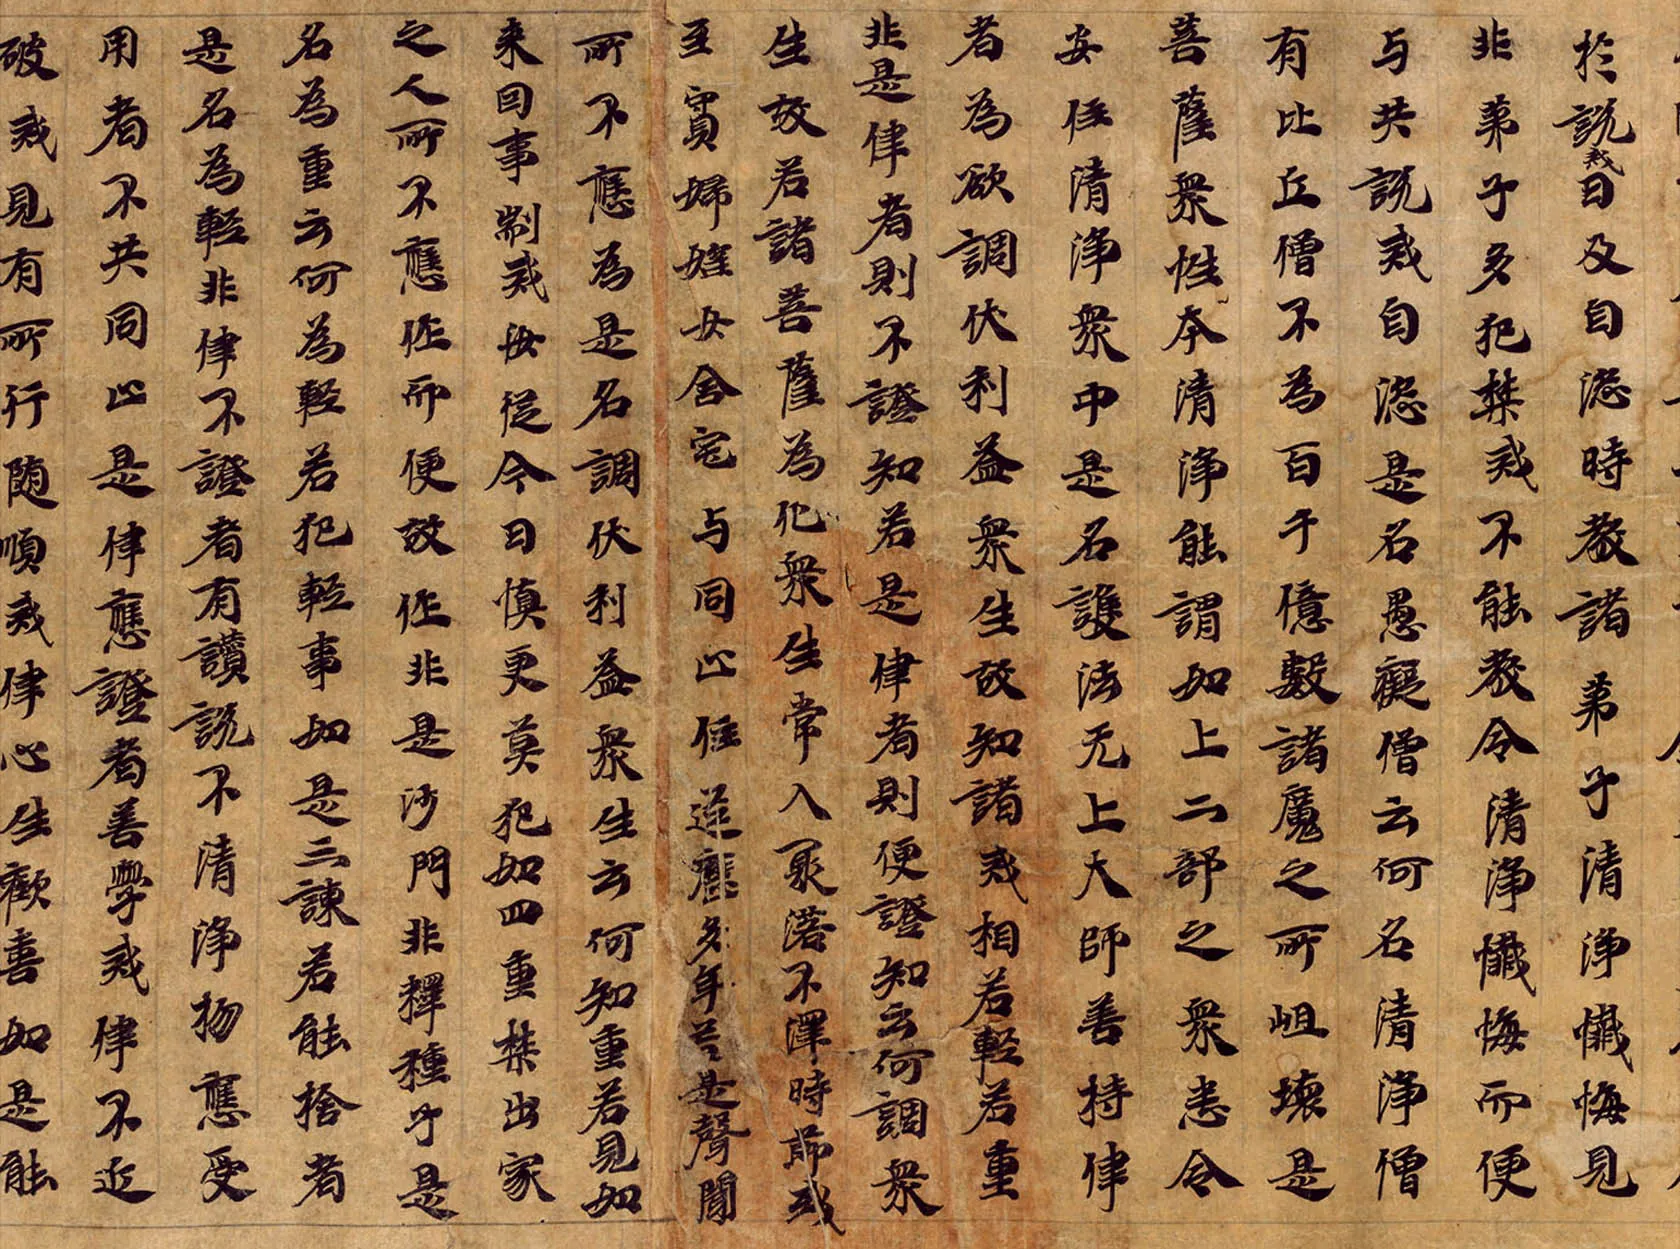 於說戒日及自恣時教諸弟子清淨懺悔見
非弟子多犯禁戒不能教令清淨懺悔而便
与共說戒自恣是名愚癡僧云何名清淨僧
有比丘僧不為百千億數諸魔之所岨壞是
菩薩衆性本清淨能調如上二部之衆悉令
安住清淨衆中是名護法无上大師善持律
者為欲調伏利益衆生故知諸戒相若輕若重
非是律者則不證知若是律者則便證知云何調衆
生故若諸菩薩為化衆生常入聚落不澤時節或
至寡婦婬女舍宅与同止住逕歷多年若是聲聞
所不應為是名調伏利益衆生云何知重若見如
来因事制戒汝從今日慎更莫犯如四重禁出家
之人所不應作而便故作非是沙門非釋種子是
名為重云何為輕若犯輕事如是三諫若能捨者
是名為輕非律不證者有讚說不清淨物應受
用者不共同止是律應證者善學戒律不近
破戒見有所行随順戒律心生歡喜如是能